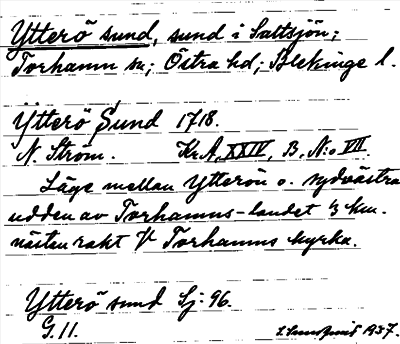 Ytterö sund, sund i Saltsjön;
Torhamn sn; Östra hd; Blekinge l.
Ytterö Sund 1718.
N. Ström. Kr.A, XXIV, B, N:o VII.
Läge mellan Ytterön o. sydvästra
udden av Torhamns-landet 3 km.
nästan rakt V Torhamns kyrka.
Ytterö sund Sj: 96.
G. 11. 1937.